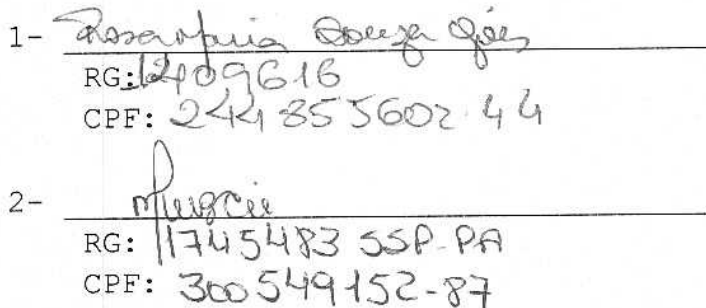 1- Rosa Maria Souza Góes
RG: 12409616
CPF: 244 855602.44
2-
RG: 1745483 SSP-PA
CPF: 300549152-87